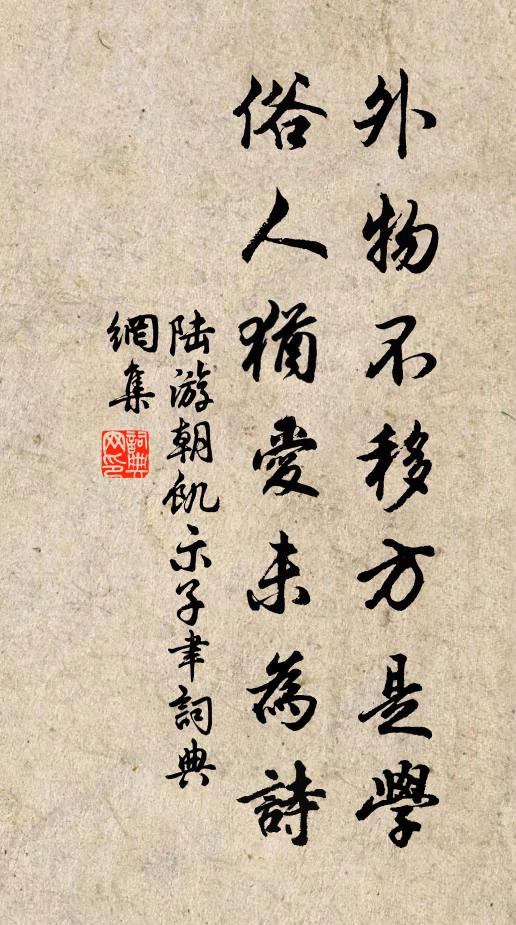 外物不移方是學
俗人猶愛未為詩
陆游朝飢示子聿詞典
網集
詞典
网印